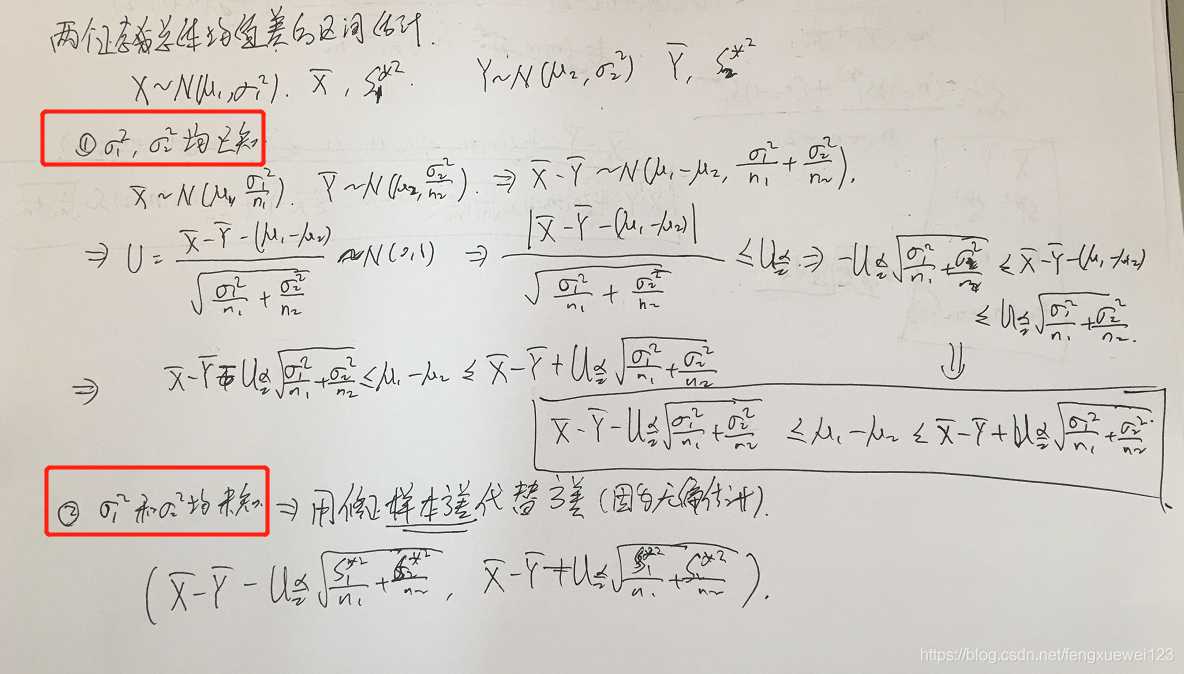 两个正态总体均值差的区间估计.
X~N(μ₁,σ₁²). X̄, S₁*². Y~N(μ₂,σ₂²) Ȳ, S₂*²
① σ₁², σ₂² 均已知.
X̄~N(μ₁, σ₁²/n₁). Ȳ~N(μ₂, σ₂²/n₂). ⇒ X̄-Ȳ ~N(μ₁-μ₂, σ₁²/n₁+σ₂²/n₂).
⇒ U = (X̄-Ȳ-(μ₁-μ₂))/√(σ₁²/n₁+σ₂²/n₂) ~N(0,1) ⇒ |X̄-Ȳ-(μ₁-μ₂)|/√(σ₁²/n₁+σ₂²/n₂) ≤U_{α/2} ⇒ -U_{α/2}√(σ₁²/n₁+σ₂²/n₂) ≤ X̄-Ȳ-(μ₁-μ₂)
≤ U_{α/2}√(σ₁²/n₁+σ₂²/n₂).
⇓
⇒ X̄-Ȳ-U_{α/2}√(σ₁²/n₁+σ₂²/n₂) ≤μ₁-μ₂ ≤ X̄-Ȳ+U_{α/2}√(σ₁²/n₁+σ₂²/n₂)
X̄-Ȳ-U_{α/2}√(σ₁²/n₁+σ₂²/n₂) ≤μ₁-μ₂ ≤ X̄-Ȳ+U_{α/2}√(σ₁²/n₁+σ₂²/n₂)
② σ₁²和σ₂²均未知. ⇒ 用修正样本方差代替方差(因为无偏估计).
(X̄-Ȳ-U_{α/2}√(S₁*²/n₁+S₂*²/n₂), X̄-Ȳ+U_{α/2}√(S₁*²/n₁+S₂*²/n₂)).
https://blog.csdn.net/fengxuewei123